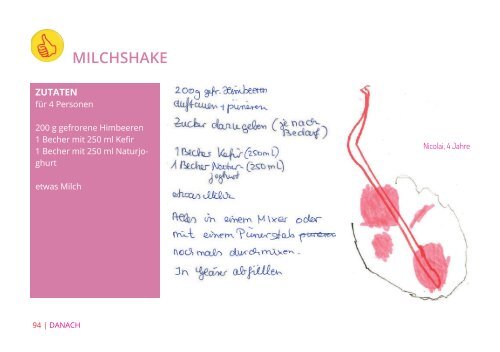 MILCHSHAKE
ZUTATEN
für 4 Personen
200 g gefrorene Himbeeren
1 Becher mit 250 ml Kefir
1 Becher mit 250 ml Naturjo-
ghurt
etwas Milch
200g gefr. Himbeeren
auftauen + pürieren
Zucker dazugeben (je nach
Bedarf)
1 Becher Kefir (250ml)
1 Becher Natur- (250ml)
joghurt
etwas Milch
Alles in einem Mixer oder
mit einem Pürierstab pürieren
nochmals durchmixen.
In Gläser abfüllen
Nicolai, 4 Jahre
94 | DANACH